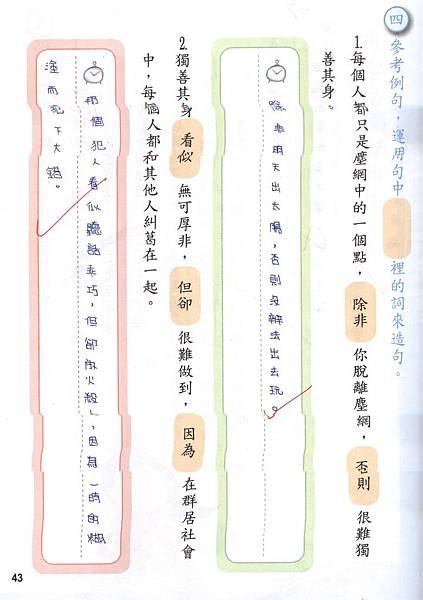 四 參考例句，運用句中 裡的詞來造句。
1.每個人都只是塵網中的一個點，除非你脫離塵網，否則很難獨
善其身。
除非明天出太陽，否則沒辦法出去玩。
2.獨善其身看似無可厚非，但卻很難做到，因為在群居社會
中，每個人都和其他人糾葛在一起。
那個犯人看似聽話乖巧，但卻放火殺人，因為一時的糊
塗而犯下大錯。
43